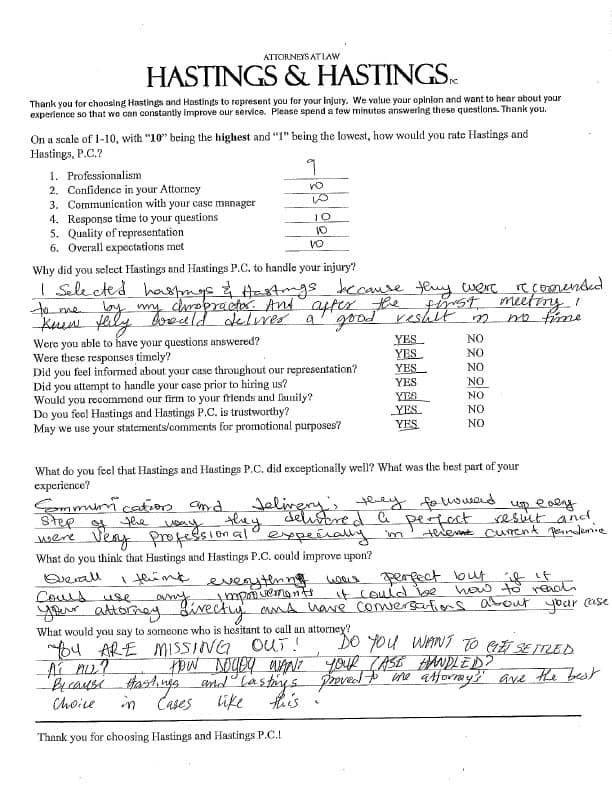 ATTORNEYS AT LAW
HASTINGS & HASTINGS PC
Thank you for choosing Hastings and Hastings to represent you for your injury. We value your opinion and want to hear about your
experience so that we can constantly improve our service. Please spend a few minutes answering these questions. Thank you.
On a scale of 1-10, with "10" being the highest and "1" being the lowest, how would you rate Hastings and
Hastings, P.C.?
1. Professionalism 9
2. Confidence in your Attorney 10
3. Communication with your case manager 10
4. Response time to your questions 10
5. Quality of representation 10
6. Overall expectations met 10
Why did you select Hastings and Hastings P.C. to handle your injury?
I Selected hastings & Hastings because they were recommended
to me by my chiropractor. And after the first meeting I
knew they would deliver a good result in no time
Were you able to have your questions answered? YES NO
Were these responses timely? YES NO
Did you feel informed about your case throughout our representation? YES NO
Did you attempt to handle your case prior to hiring us? YES NO
Would you recommend our firm to your friends and family? YES NO
Do you feel Hastings and Hastings P.C. is trustworthy? YES NO
May we use your statements/comments for promotional purposes? YES NO
What do you feel that Hastings and Hastings P.C. did exceptionally well? What was the best part of your
experience?
Communication and delivery; they followed up every
Step of the way they delivered a perfect result and
were Very professional especially in current Pandemic
What do you think that Hastings and Hastings P.C. could improve upon?
Overall I think everything was perfect but if it
Could use any improvements it could be how to reach
your attorney directly and have conversations about your case
What would you say to someone who is hesitant to call an attorney?
YOU ARE MISSING OUT! DO YOU WANT TO GET SETTLED
AT ALL? HOW DO YOU WANT YOUR CASE HANDLED?
Because Hastings and Hastings proved to me attorney's are the best
Choice in Cases like this.
Thank you for choosing Hastings and Hastings P.C.!